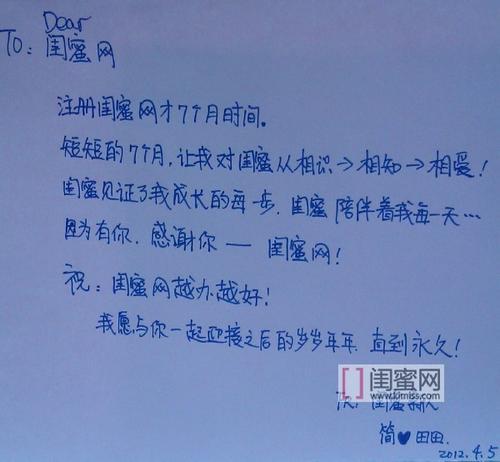 Dear
To: 闺蜜网
注册闺蜜网才7个月时间。
短短的7个月,让我对闺蜜从相识→相知→相爱!
闺蜜见证了我成长的每一步.闺蜜陪伴着我每一天…
因为有你.感谢你——闺蜜网!
祝:闺蜜网越办越好!
我愿与你一起迎接之后的岁岁年年.直到永久!
闺蜜网
www.kimiss.com
闺蜜
简♥田田.
2012.4.5